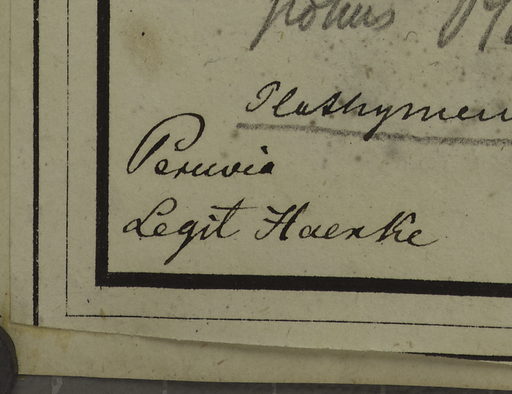 Plathymen
Peruvia
Legit Haenke